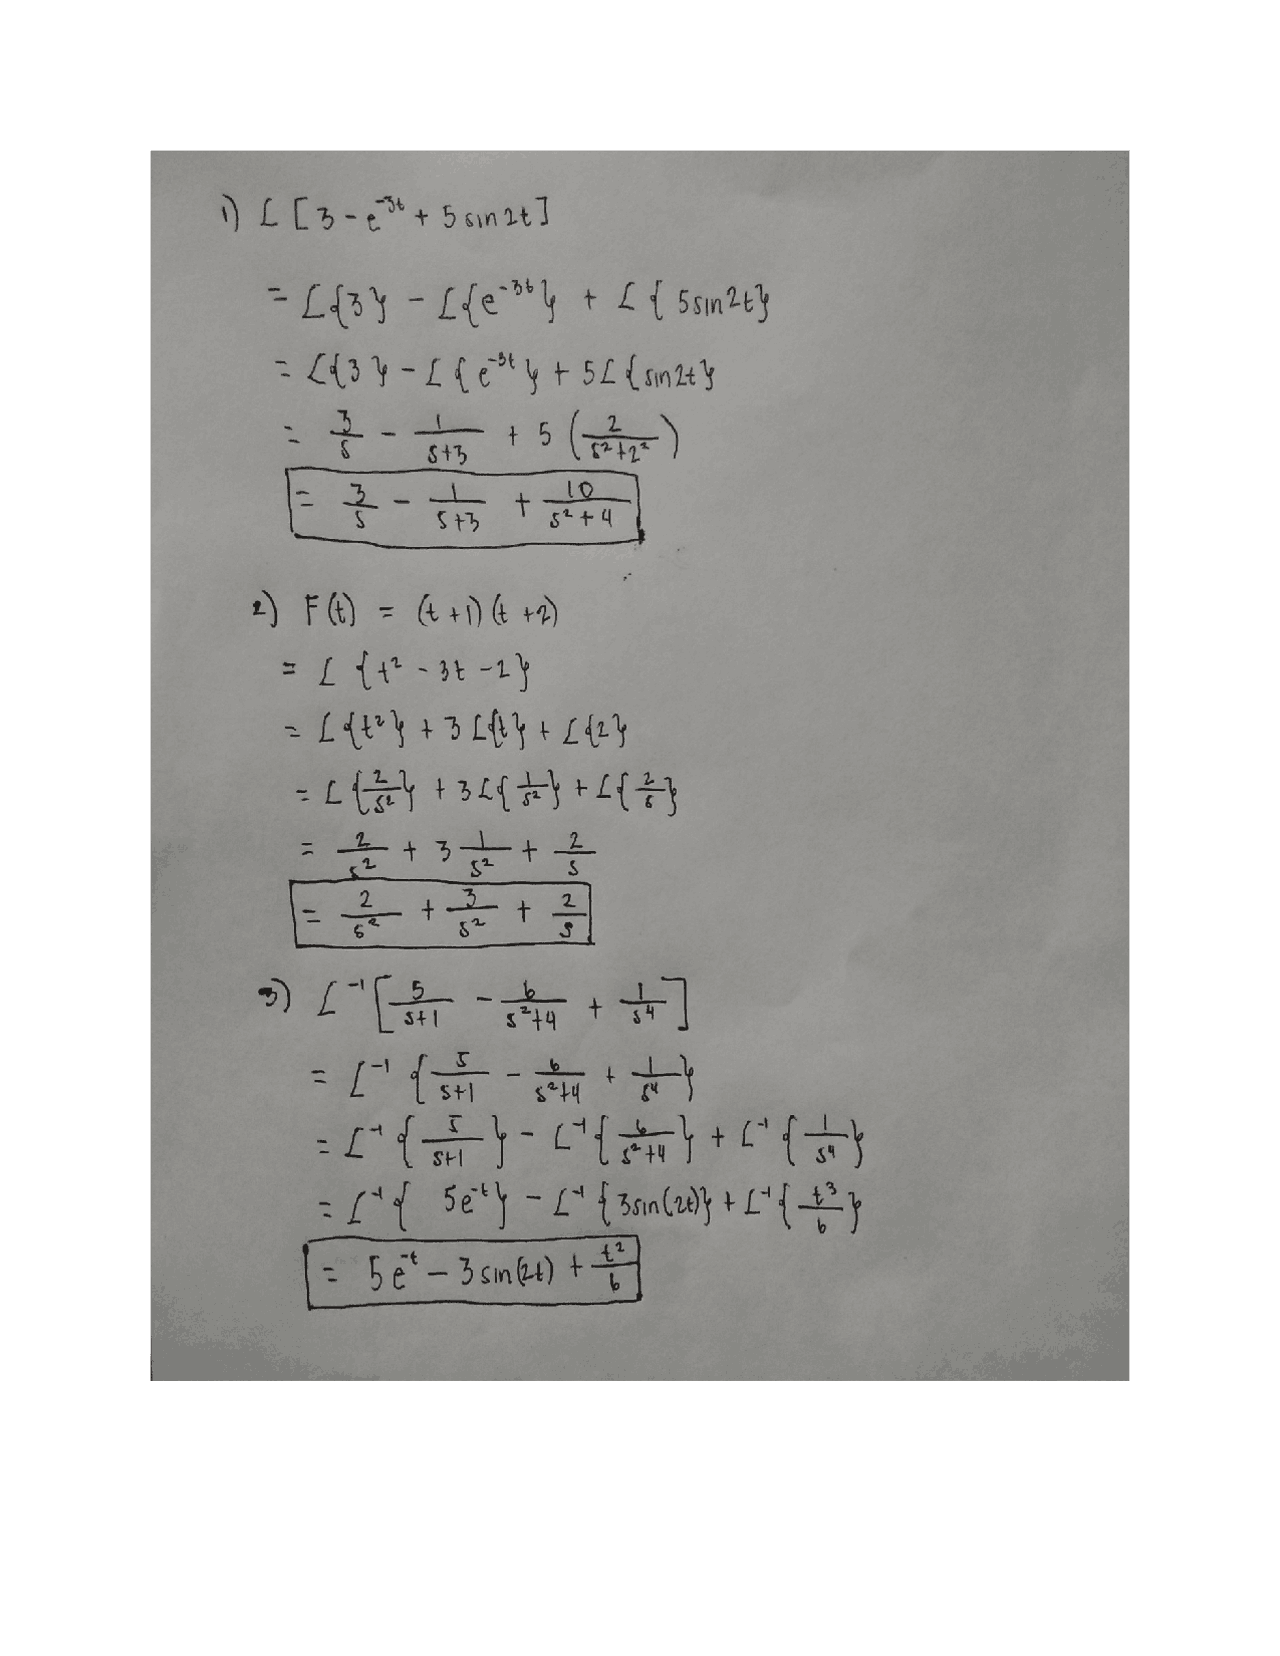 1) L [3 - e^-3t + 5 sin 2t]
= L{3} - L{e^-3t} + L{5 sin 2t}
= L{3} - L{e^-3t} + 5L{sin 2t}
= 3/s - 1/(s+3) + 5 (2/(s²+2²))
= 3/s - 1/(s+3) + 10/(s²+4)
2) F(t) = (t+1)(t+2)
= L {t² - 3t - 2}
= L{t²} + 3 L{t} + L{2}
= L{2/s²} + 3L{1/s²} + L{2/s}
= 2/s² + 3 1/s² + 2/s
= 2/s² + 3/s² + 2/s
3) L^-1 [5/(s+1) - 6/(s²+4) + 1/s⁴]
= L^-1 {5/(s+1) - 6/(s²+4) + 1/s⁴}
= L^-1 {5/(s+1)} - L^-1 {6/(s²+4)} + L^-1 {1/s⁴}
= L^-1 {5e^-t} - L^-1 {3sin(2t)} + L^-1 {t³/6}
= 5e^-t - 3 sin(2t) + t²/6